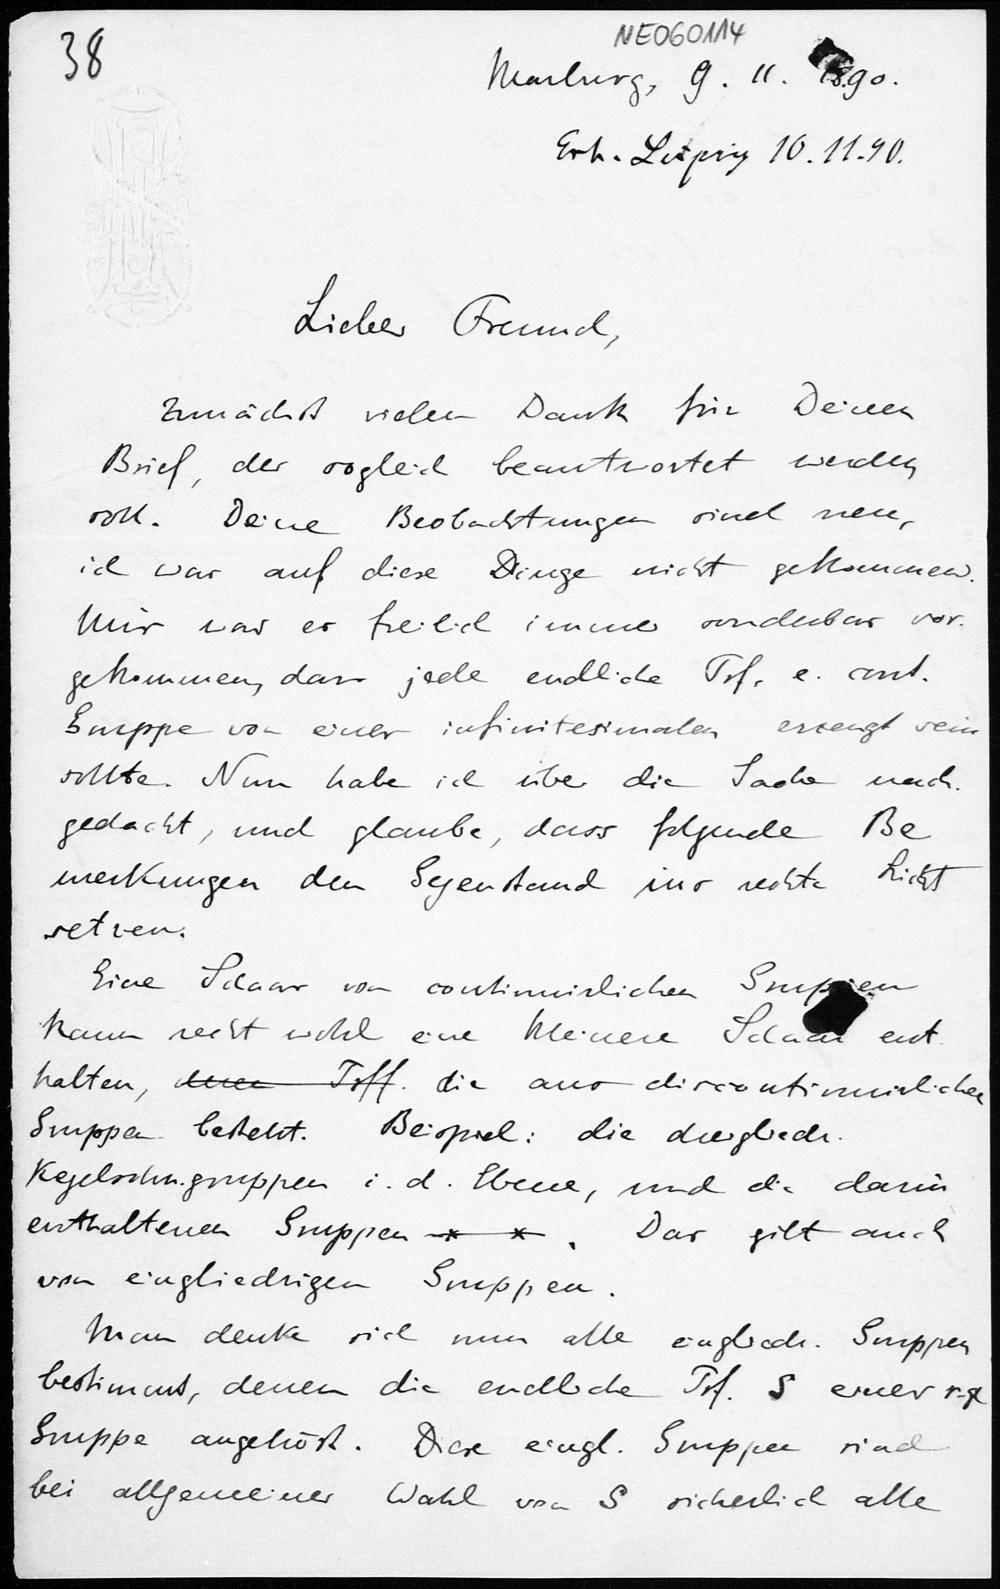 38
NE060114
Marburg, 9. 11. 1890.
Erh. Leipzig 10.11.90.
Lieber Freund,
zunächst vielen Dank für Deinen
Brief, der sogleich beantwortet werden
soll. Deine Beobachtungen sind neu,
ich war auf diese Dinge nicht gekommen.
Mir war es freilich immer sonderbar vor-
gekommen, dass jede endliche Trf. e. cont.
Gruppe von einer infinitesimalen erzeugt sein
sollte. Nun habe ich über die Sache nach-
gedacht, und glaube, dass folgende Be
merkungen den Gegenstand ins rechte Licht
setzen.
Eine Schaar von continuirlichen Gruppen
kann recht wohl eine kleinere Schaar ent
halten, deren Trff. die aus discontinuirlichen
Gruppen besteht. Beispiel: die dreigliedr.
Kegelschn.gruppen i. d. Ebene, und die darin
enthaltenen Gruppen * *. Das gilt auch
von eingliedrigen Gruppen.
Man denke sich nun alle eingliedr. Gruppen
bestimmt, denen die endliche Trf. S einer r-gl
Gruppe angehört. Diese eingl. Gruppen sind
bei allgemeiner Wahl von S sicherlich alle